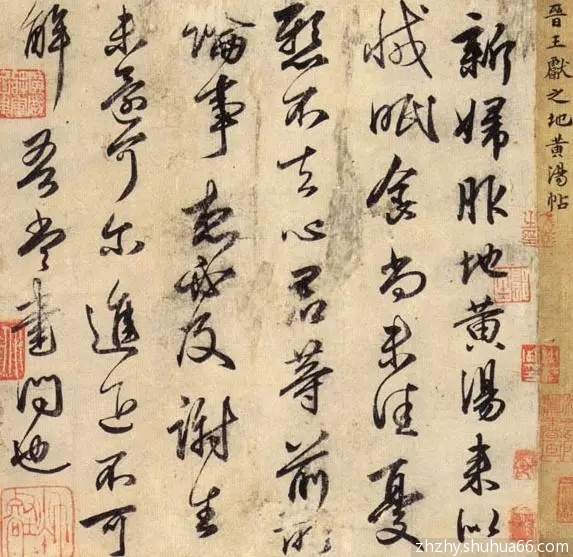 晉王獻之地黃湯帖
新婦服地黃湯来似
減眠食尚未佳憂
懸不去心君等前所
論事想必及謝生
未還可尓進退不可
解吾當書問也
zhzhyshuhua66.com